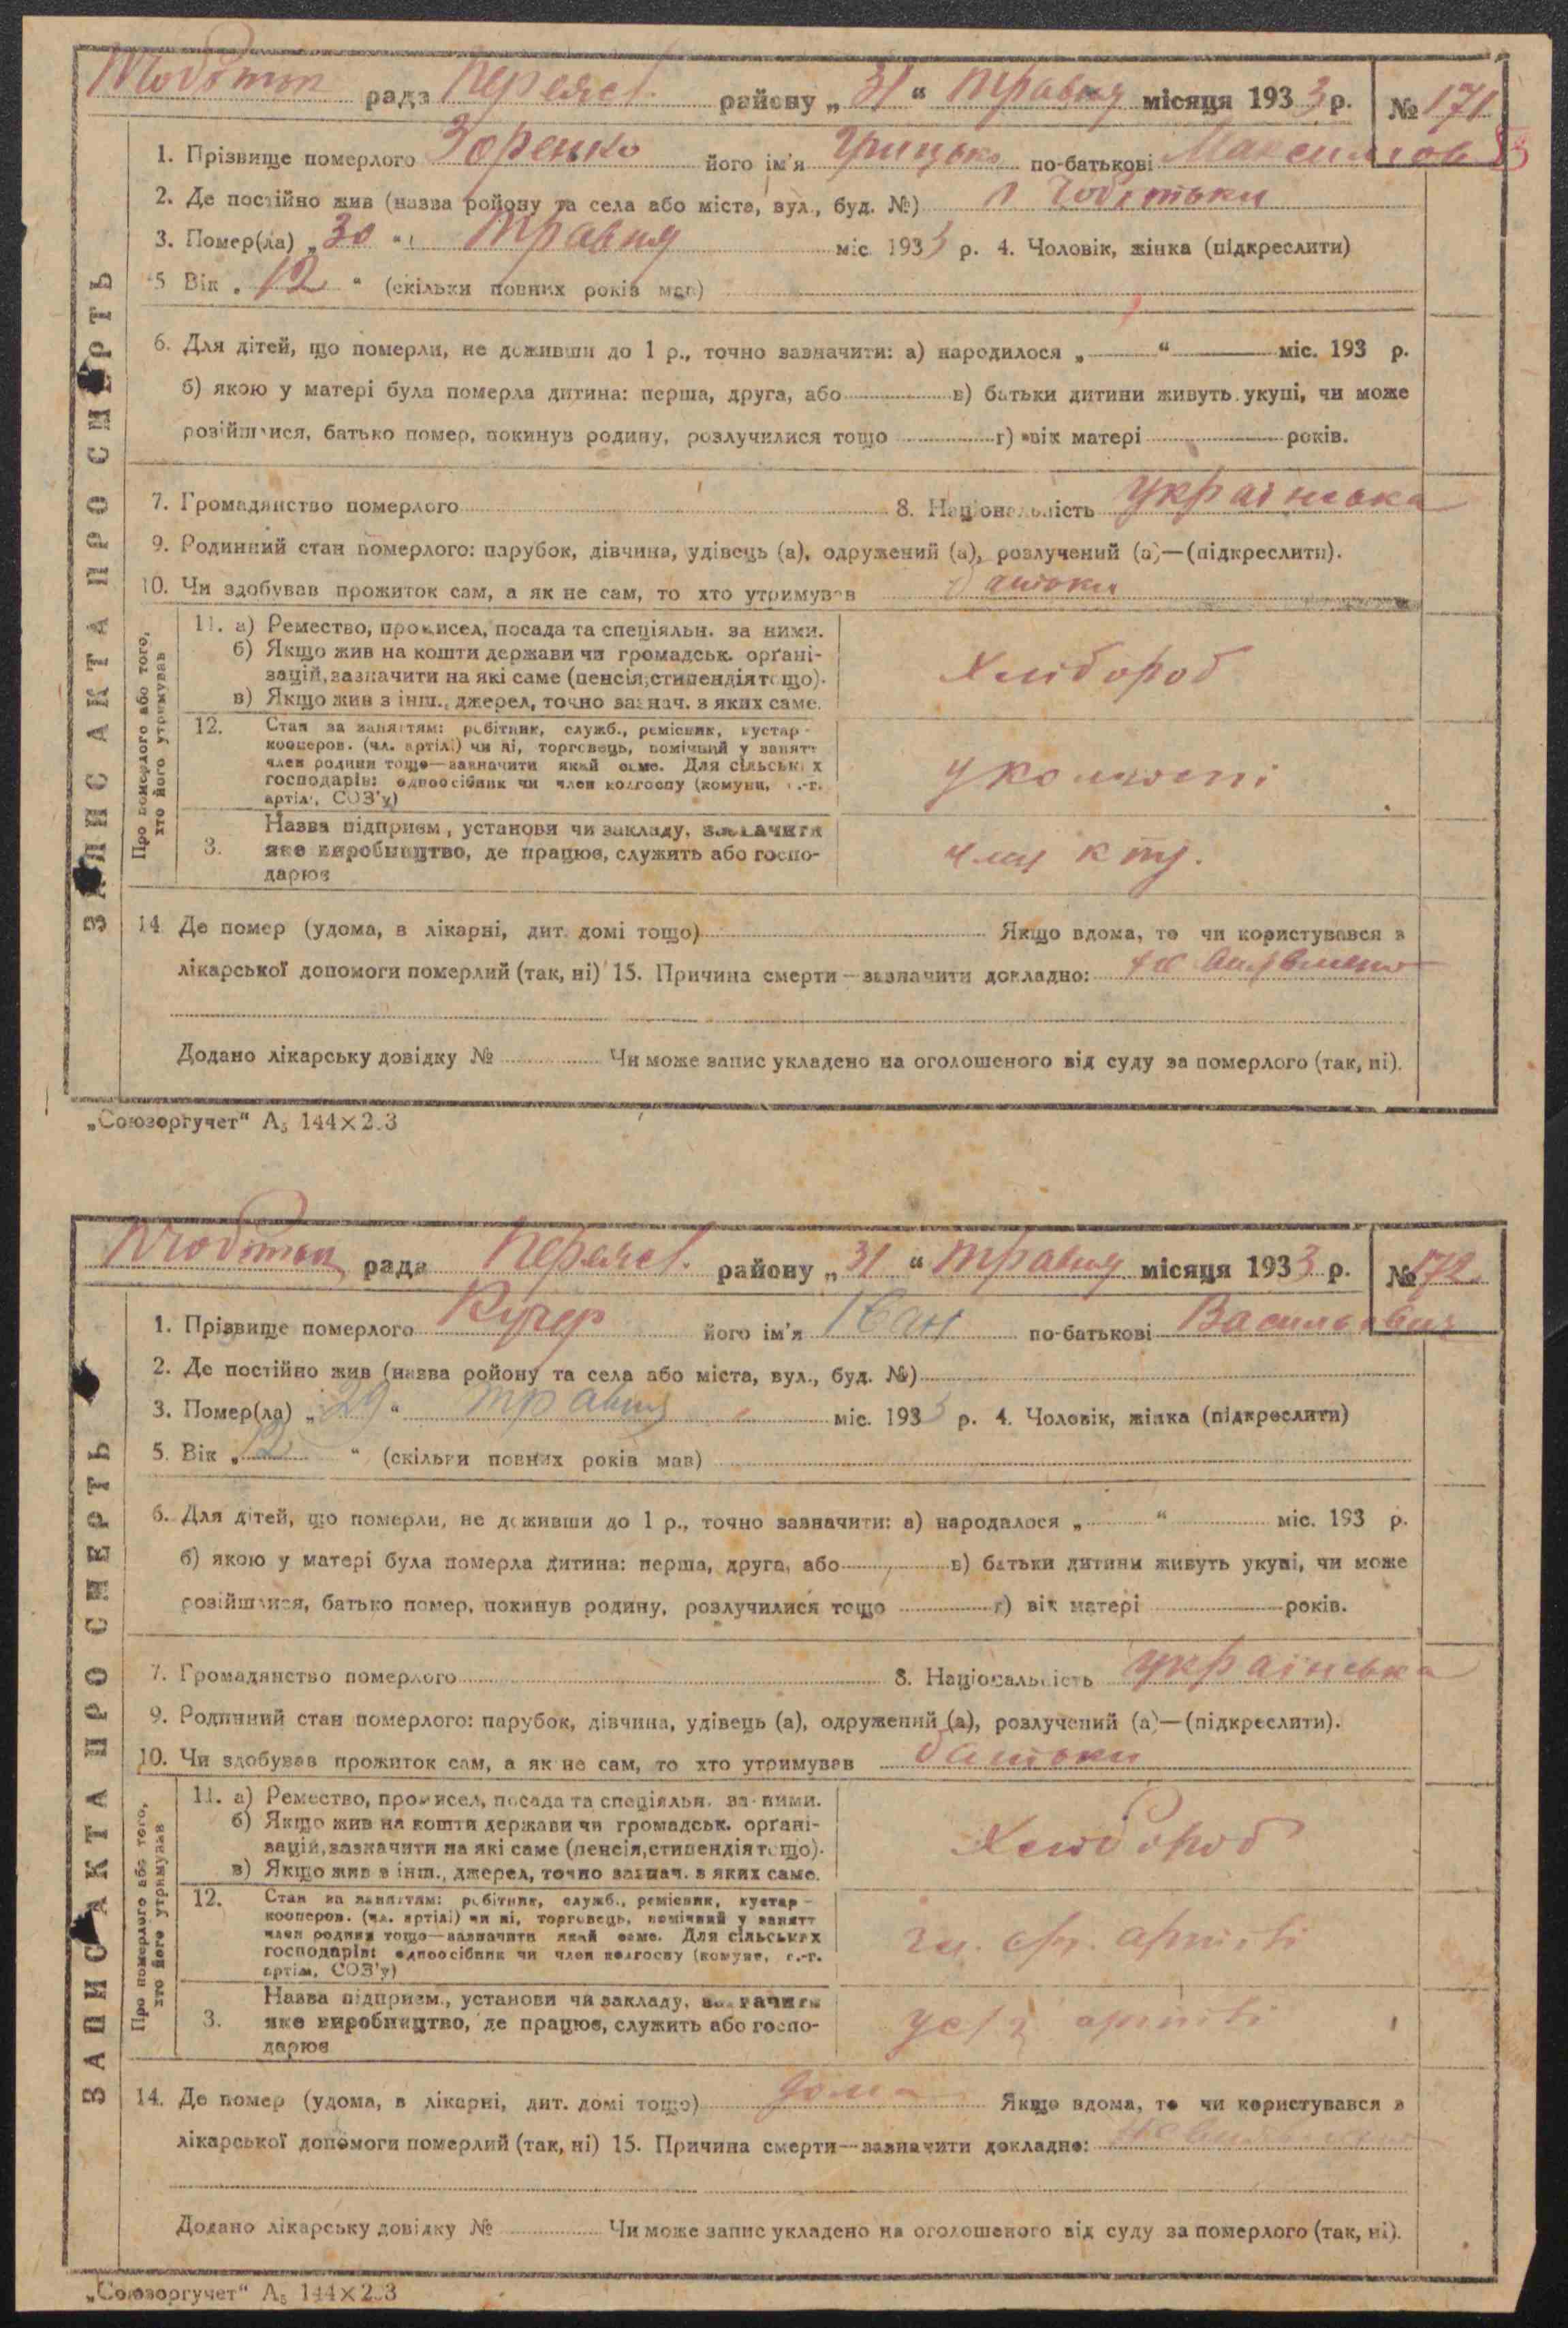 рада Переясл. району „31“ Травня місяця 1933 р. № 171
1. Прізвище померлого Зоренко його ім'я Грицько по-батькові Максимов
2. Де постійно жив (назва району та села або міста, вул., буд. №)
3. Помер(ла) „30“ Травня міс. 1933 р. 4. Чоловік, жінка (підкреслити)
5 Вік „12“ (скільки повних років мав)
6. Для дітей, що померли, не доживши до 1 р., точно зазначити: а) народилося „ “ міс. 193 р.
б) якою у матері була померла дитина: перша, друга, або в) батьки дитини живуть укупі, чи може
розійшлися, батько помер, покинув родину, розлучилися тощо г) вік матері років.
7. Громадянство померлого 8. Національність українська
9. Родинний стан померлого: парубок, дівчина, удівець (а), одружений (а), розлучений (а)—(підкреслити).
10. Чи здобував прожиток сам, а як не сам, то хто утримував батьки
ЗАПИС АКТА ПРО СМЕРТЬ
Про померлого або того,
хто його утримував
11. а) Ремество, промисел, посада та спеціяльн. за ними.
б) Якщо жив на кошти держави чи громадськ. орґані-
зацій, зазначити на які саме (пенсія, стипендія тощо).
в) Якщо жив з інш., джерел, точно зазнач. з яких саме.
Хлібороб
12. Стан за заняттям: робітник, служб., ремісник, кустар-
кооперов. (чл. артілі) чи ні, торговець, помічний у занятт
член родини тощо—зазначити який саме. Для сільських
господарів: одноосібник чи член колгоспу (комуни, с.-г.
артіл., СОЗ'у)
3. Назва підприєм., установи чи закладу, зазначити
яке виробництво, де працює, служить або госпо-
дарює
14. Де помер (удома, в лікарні, дит. домі тощо) Якщо вдома, то чи користувався з
лікарської допомоги померлий (так, ні) 15. Причина смерти—зазначити докладно: не виявлено
Додано лікарську довідку № Чи може запис укладено на оголошеного від суду за померлого (так, ні).
„Союзоргучет“ А₅ 144×2.3
рада Переясл. району „31“ Травня місяця 1933 р. № 172
1. Прізвище померлого Кучер його ім'я Іван по-батькові Васильович
2. Де постійно жив (назва району та села або міста, вул., буд. №)
3. Помер(ла) „29“ травня міс. 1933 р. 4. Чоловік, жінка (підкреслити)
5. Вік „12“ (скільки повних років мав)
6. Для дітей, що померли, не доживши до 1 р., точно зазначити: а) народилося „ “ міс. 193 р.
б) якою у матері була померла дитина: перша, друга, або в) батьки дитини живуть укупі, чи може
розійшлися, батько помер, покинув родину, розлучилися тощо г) вік матері років.
7. Громадянство померлого 8. Національність українська
9. Родинний стан померлого: парубок, дівчина, удівець (а), одружений (а), розлучений (а)—(підкреслити).
10. Чи здобував прожиток сам, а як не сам, то хто утримував батьки
ЗАПИС АКТА ПРО СМЕРТЬ
Про померлого або того,
хто його утримував
11. а) Ремество, промисел, посада та спеціяльн. за ними.
б) Якщо жив на кошти держави чи громадськ. орґані-
зацій, зазначити на які саме (пенсія, стипендія тощо).
в) Якщо жив з інш., джерел, точно зазнач. з яких саме.
Хлібороб
12. Стан за заняттям: робітник, служб., ремісник, кустар-
кооперов. (чл. артілі) чи ні, торговець, помічний у занятт
член родини тощо—зазначити який саме. Для сільських
господарів: одноосібник чи член колгоспу (комуни, с.-г.
артіл., СОЗ'у)
артілі
3. Назва підприєм., установи чи закладу, зазначити
яке виробництво, де працює, служить або госпо-
дарює
артілі
14. Де помер (удома, в лікарні, дит. домі тощо) дома Якщо вдома, то чи користувався з
лікарської допомоги померлий (так, ні) 15. Причина смерти—зазначити докладно: не виявлено
Додано лікарську довідку № Чи може запис укладено на оголошеного від суду за померлого (так, ні).
„Союзоргучет“ А₅ 144×2.3